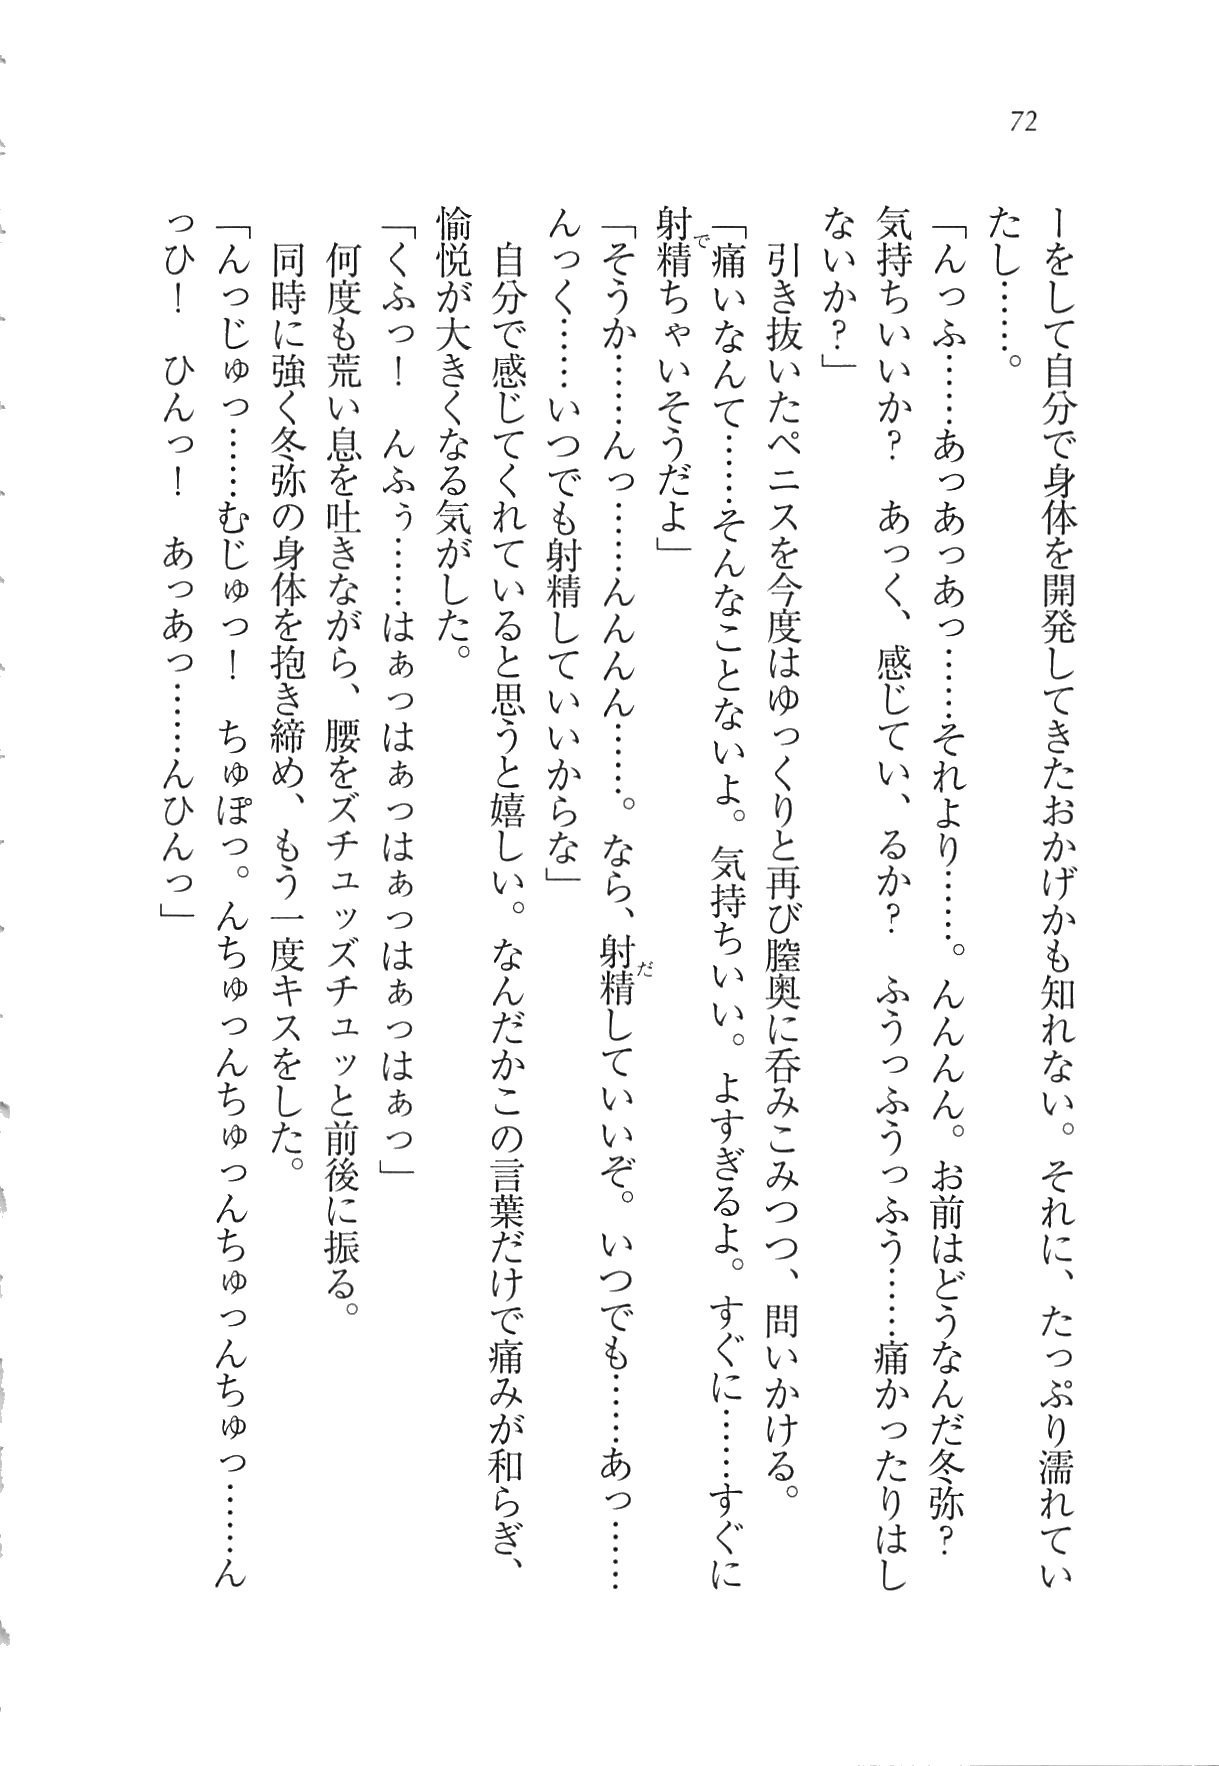 72
ーをして自分で身体を開発してきたおかげかも知れない。それに、たっぷり濡れてい
たし……。
「んっふ……あっあっあっ……それより……。んんんん。お前はどうなんだ冬弥？
気持ちいいか？　あっく、感じてい、るか？　ふうっふうっふう……痛かったりはし
ないか？」
　引き抜いたペニスを今度はゆっくりと再び膣奥に呑みこみつつ、問いかける。
「痛いなんて……そんなことないよ。気持ちいい。よすぎるよ。すぐに……すぐに
で
射精ちゃいそうだよ」
だ
「そうか……んっ……んんんん……。なら、射精していいぞ。いつでも……あっ……
んっく……いつでも射精していいからな」
　自分で感じてくれていると思うと嬉しい。なんだかこの言葉だけで痛みが和らぎ、
愉悦が大きくなる気がした。
「くふっ！　んふぅ……はぁっはぁっはぁっはぁっはぁっ」
　何度も荒い息を吐きながら、腰をズチュッズチュッと前後に振る。
　同時に強く冬弥の身体を抱き締め、もう一度キスをした。
「んっじゅっ……むじゅっ！　ちゅぽっ。んちゅっんちゅっんちゅっんちゅっ……ん
っひ！　ひんっ！　あっあっ……んひんっ」